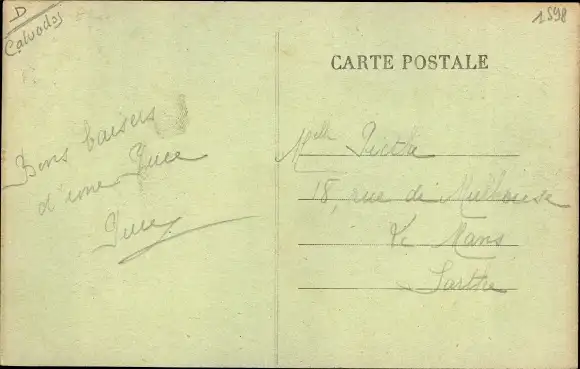 D
Calvados
1598
CARTE POSTALE
Bons baisers
d'une Puce
Puce
Melle
18, rue de Mulhouse
Le Mans
Sarthe